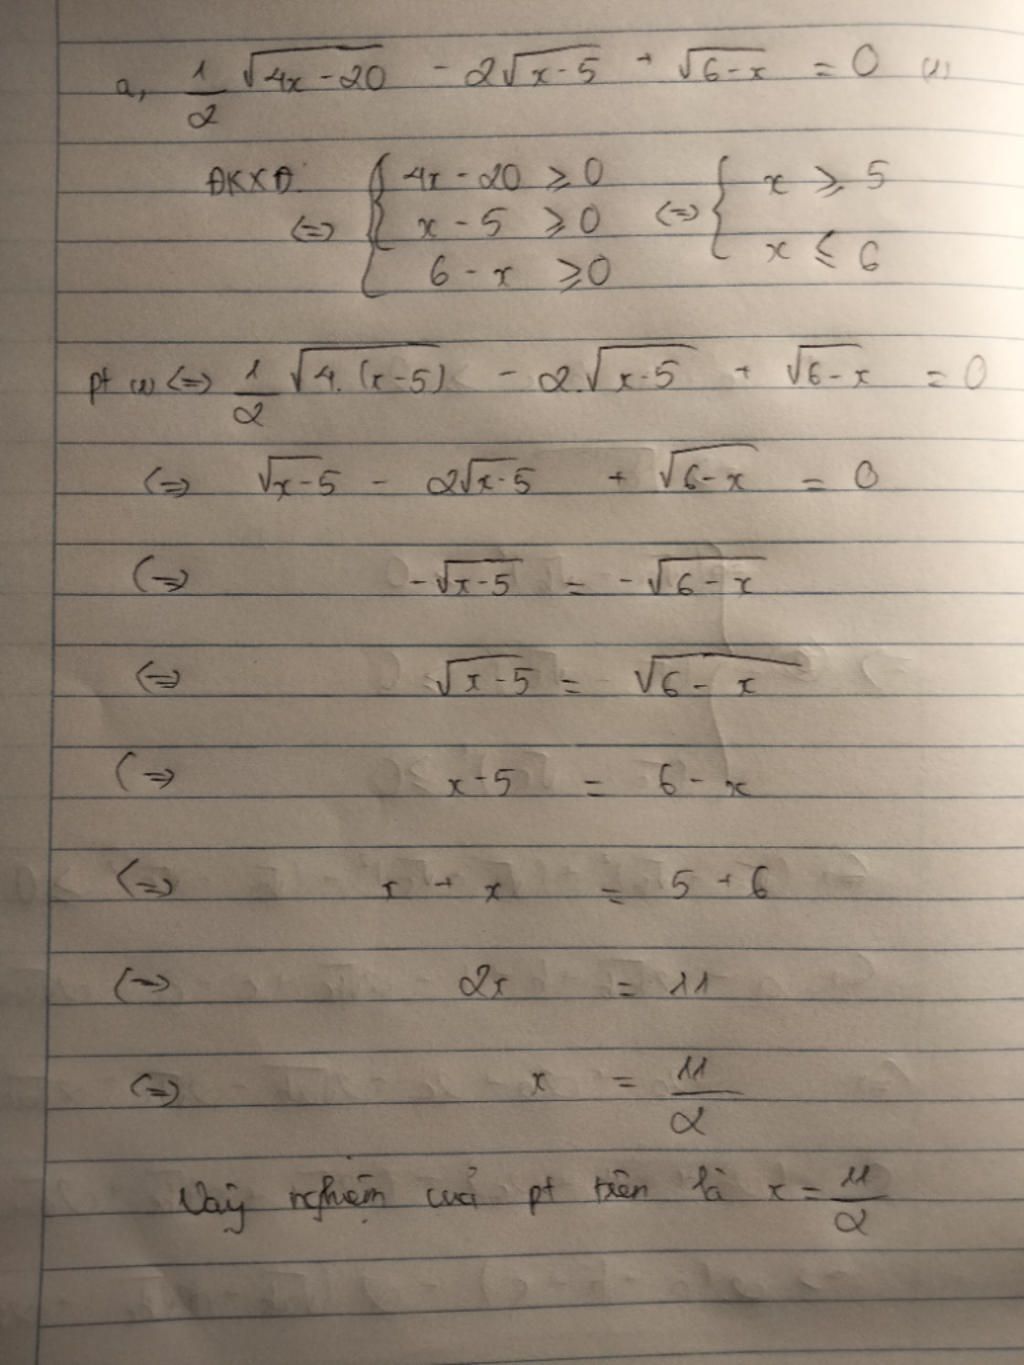 a, 1/2 √(4x-20) - 2√(x-5) + √(6-x) = 0 (1)
ĐKXĐ: <=> { 4x-20 ⩾ 0 ; x-5 ⩾ 0 ; 6-x ⩾ 0 <=> { x ⩾ 5 ; x ⩽ 6
pt (1) <=> 1/2 √(4.(x-5)) - 2.√(x-5) + √(6-x) = 0
<=> √(x-5) - 2√(x-5) + √(6-x) = 0
<=> -√(x-5) = -√(6-x)
<=> √(x-5) = √(6-x)
<=> x-5 = 6-x
<=> x + x = 5 + 6
<=> 2x = 11
<=> x = 11/2
Vậy nghiệm của pt trên là x = 11/2